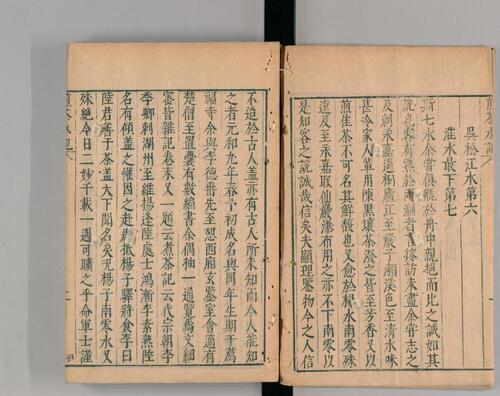 吳松江水第六
淮水最下第七
斯七水余嘗俱瓶於舟中親挹而比之誠如其
說也客有熟於兩浙者言搜訪未盡余嘗志之
及刺永嘉過桐廬江至嚴子瀨溪色至清水味
甚冷家人輩用陳黑壞茶潑之皆至芳香又以
煎佳茶不可名其鮮馥也又愈於楊子南零殊
遠及至永嘉取仙巖瀑布用之亦不下南零以
是知客之說誠哉信矣夫顯理鑒物今之人信
不迨於古人蓋亦有古人所未知而今人能知
之者元和九年春予初成名與同年生期于薦
福寺余與李德垂先至憩西廂玄鑒室會適有
楚僧至置囊有數編書余偶抽一通覽焉文細
密皆雜記卷末又一題云煮茶記云代宗朝李
季卿刺湖州至維揚逢陸處士鴻漸李素熟陸
名有傾蓋之懽因之赴郡抵楊子驛將食李曰
陸君善于茶蓋天下聞名矣况楊子南零水又
殊絕今日二妙千載一遇可曠之乎命軍士謹